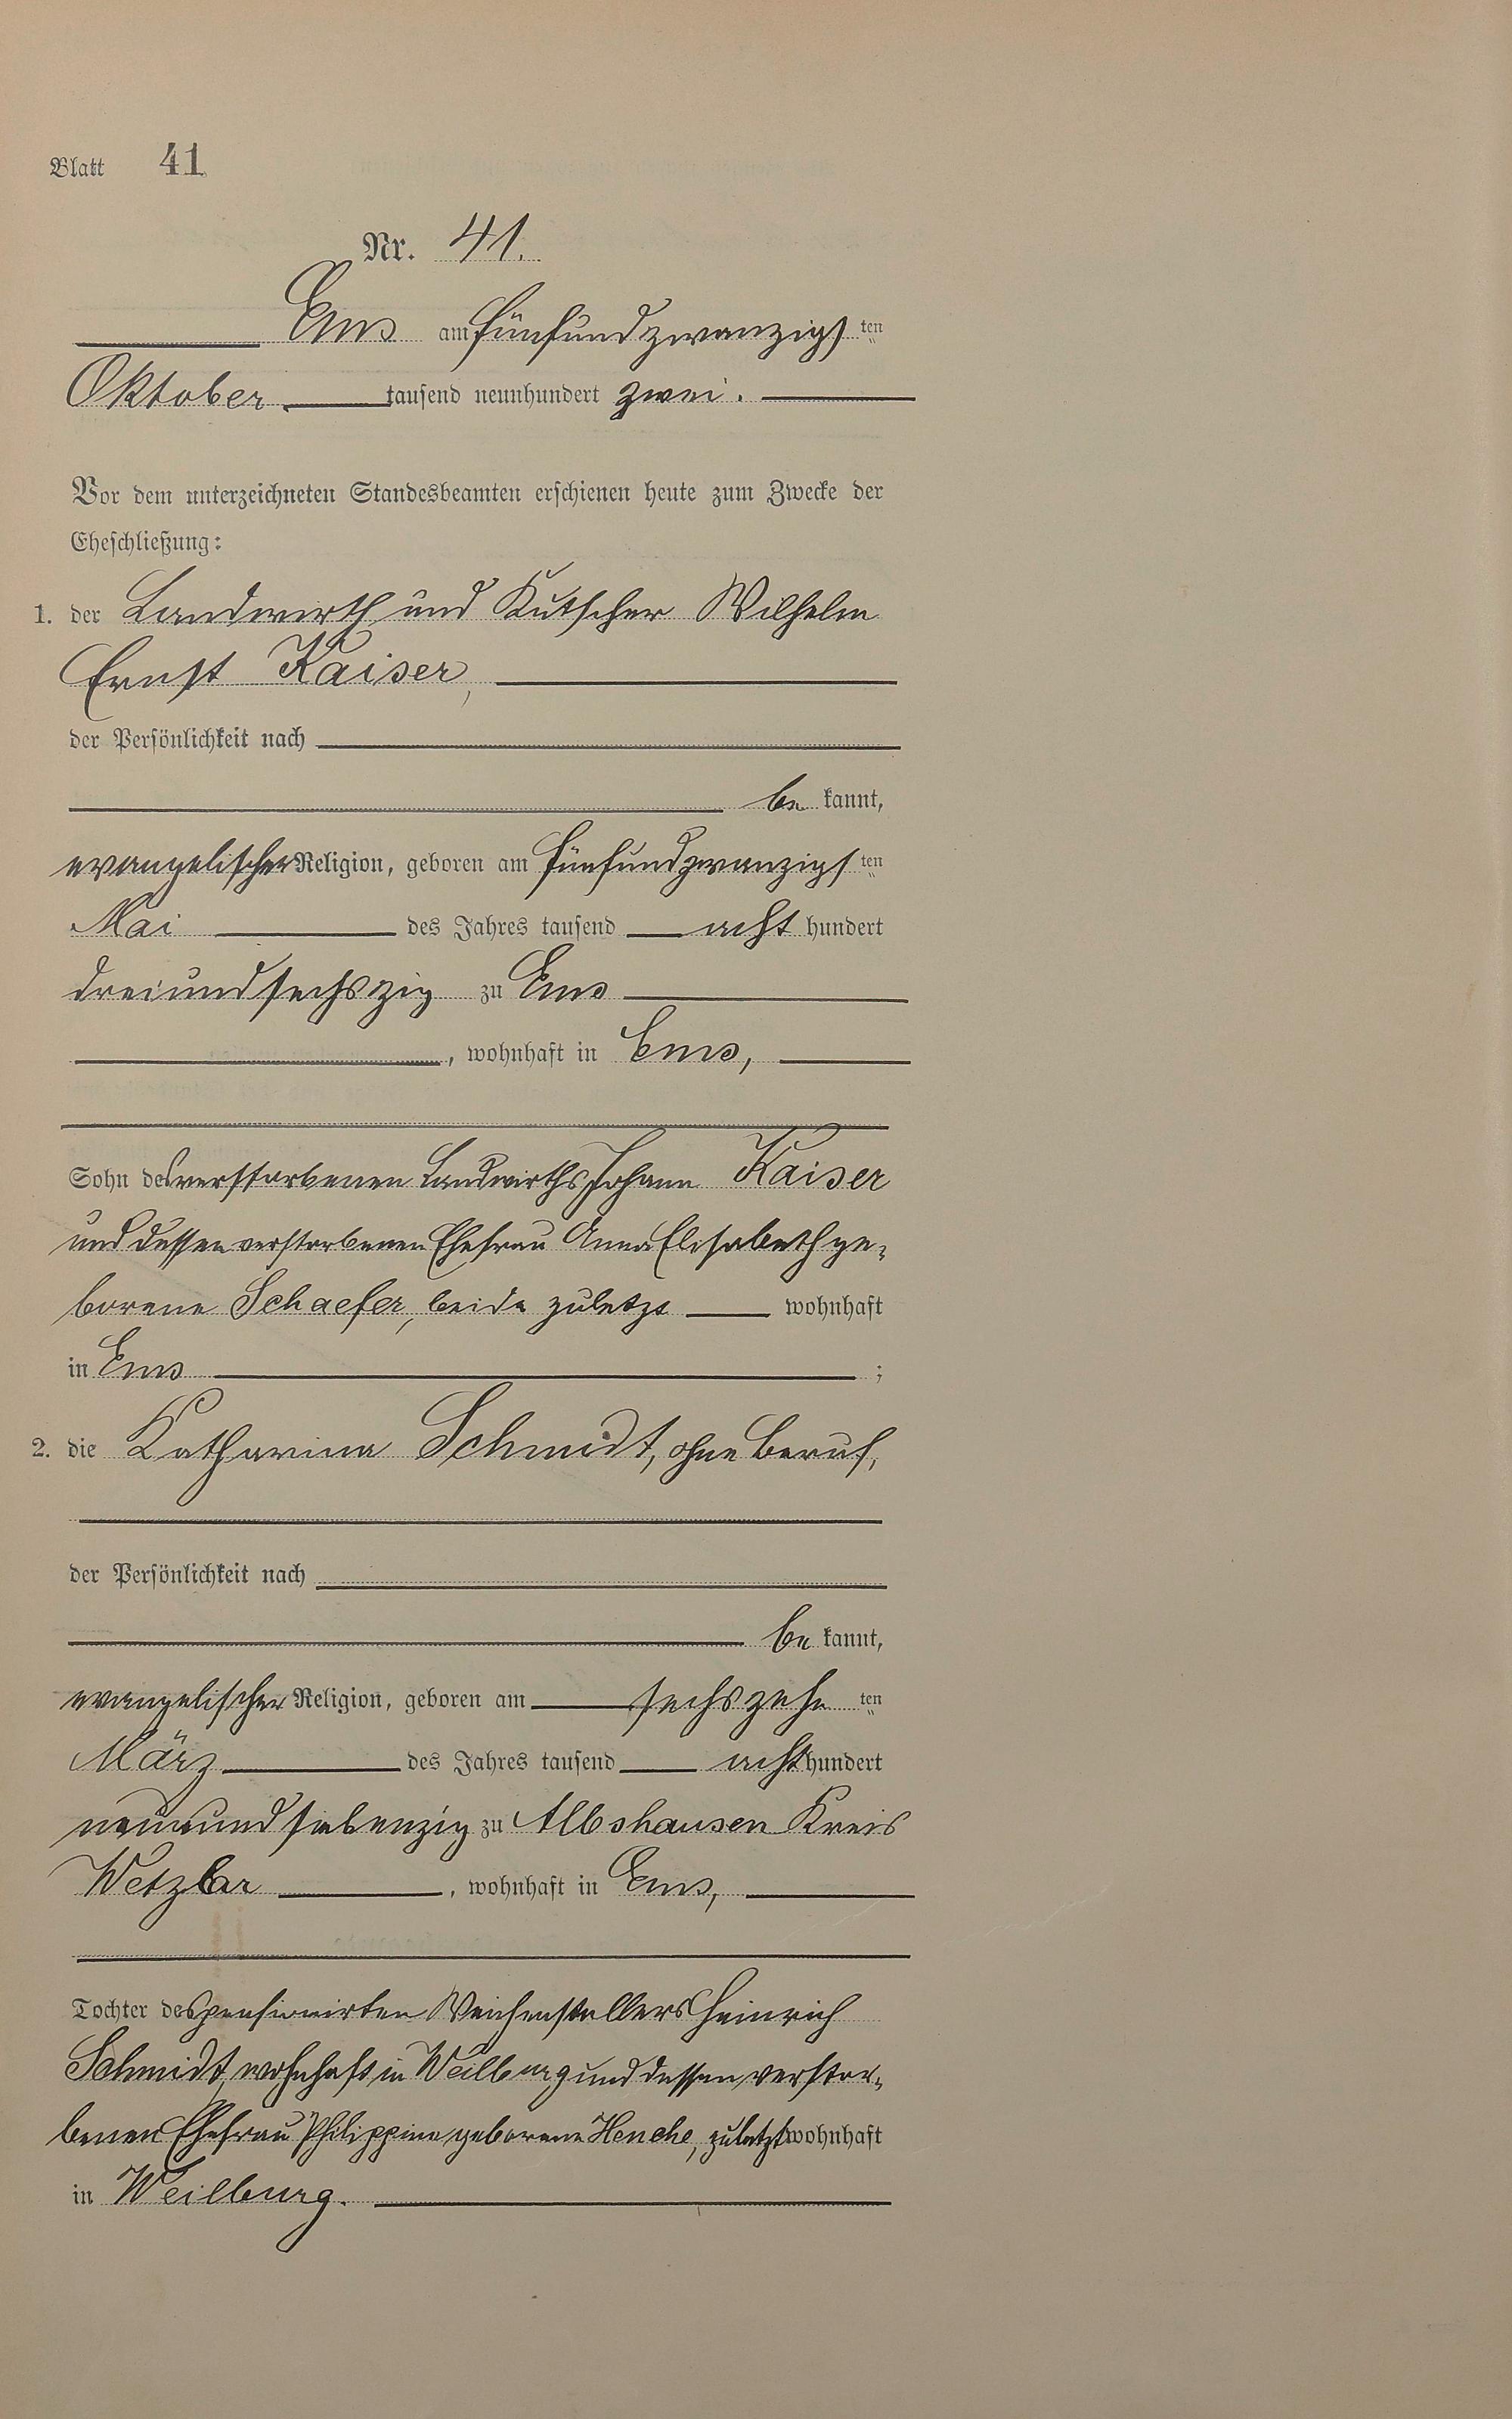 Blatt 41
Nr. 41.
Ems am fünfundzwanzigsten
Oktober tausend neunhundert zwei.
Vor dem unterzeichneten Standesbeamten erschienen heute zum Zwecke der
Eheschließung:
1. der Landwirth und Kutscher Wilhelm
Ernst Kaiser,
der Persönlichkeit nach
be kannt,
evangelischer Religion, geboren am fünfundzwanzigsten
Mai des Jahres tausend acht hundert
dreiundsechszig zu Ems
, wohnhaft in Ems,
Sohn des verstorbenen Landwirths Johann Kaiser
und dessen verstorbenen Ehefrau Anna Elisabeth ge-
borene Schaefer, beide zuletzt wohnhaft
in Ems ;
2. die Katharina Schmidt, ohne Beruf,
der Persönlichkeit nach
be kannt,
evangelischer Religion, geboren am sechszehnten
März des Jahres tausend acht hundert
neunundsiebenzig zu Albshausen Kreis
Wetzlar, wohnhaft in Ems,
Tochter des pensionirten Weichenstellers Heinrich
Schmidt, wohnhaft in Weilburg und dessen verstor-
benen Ehefrau Philippine geborene Henche, zuletzt wohnhaft
in Weilburg.